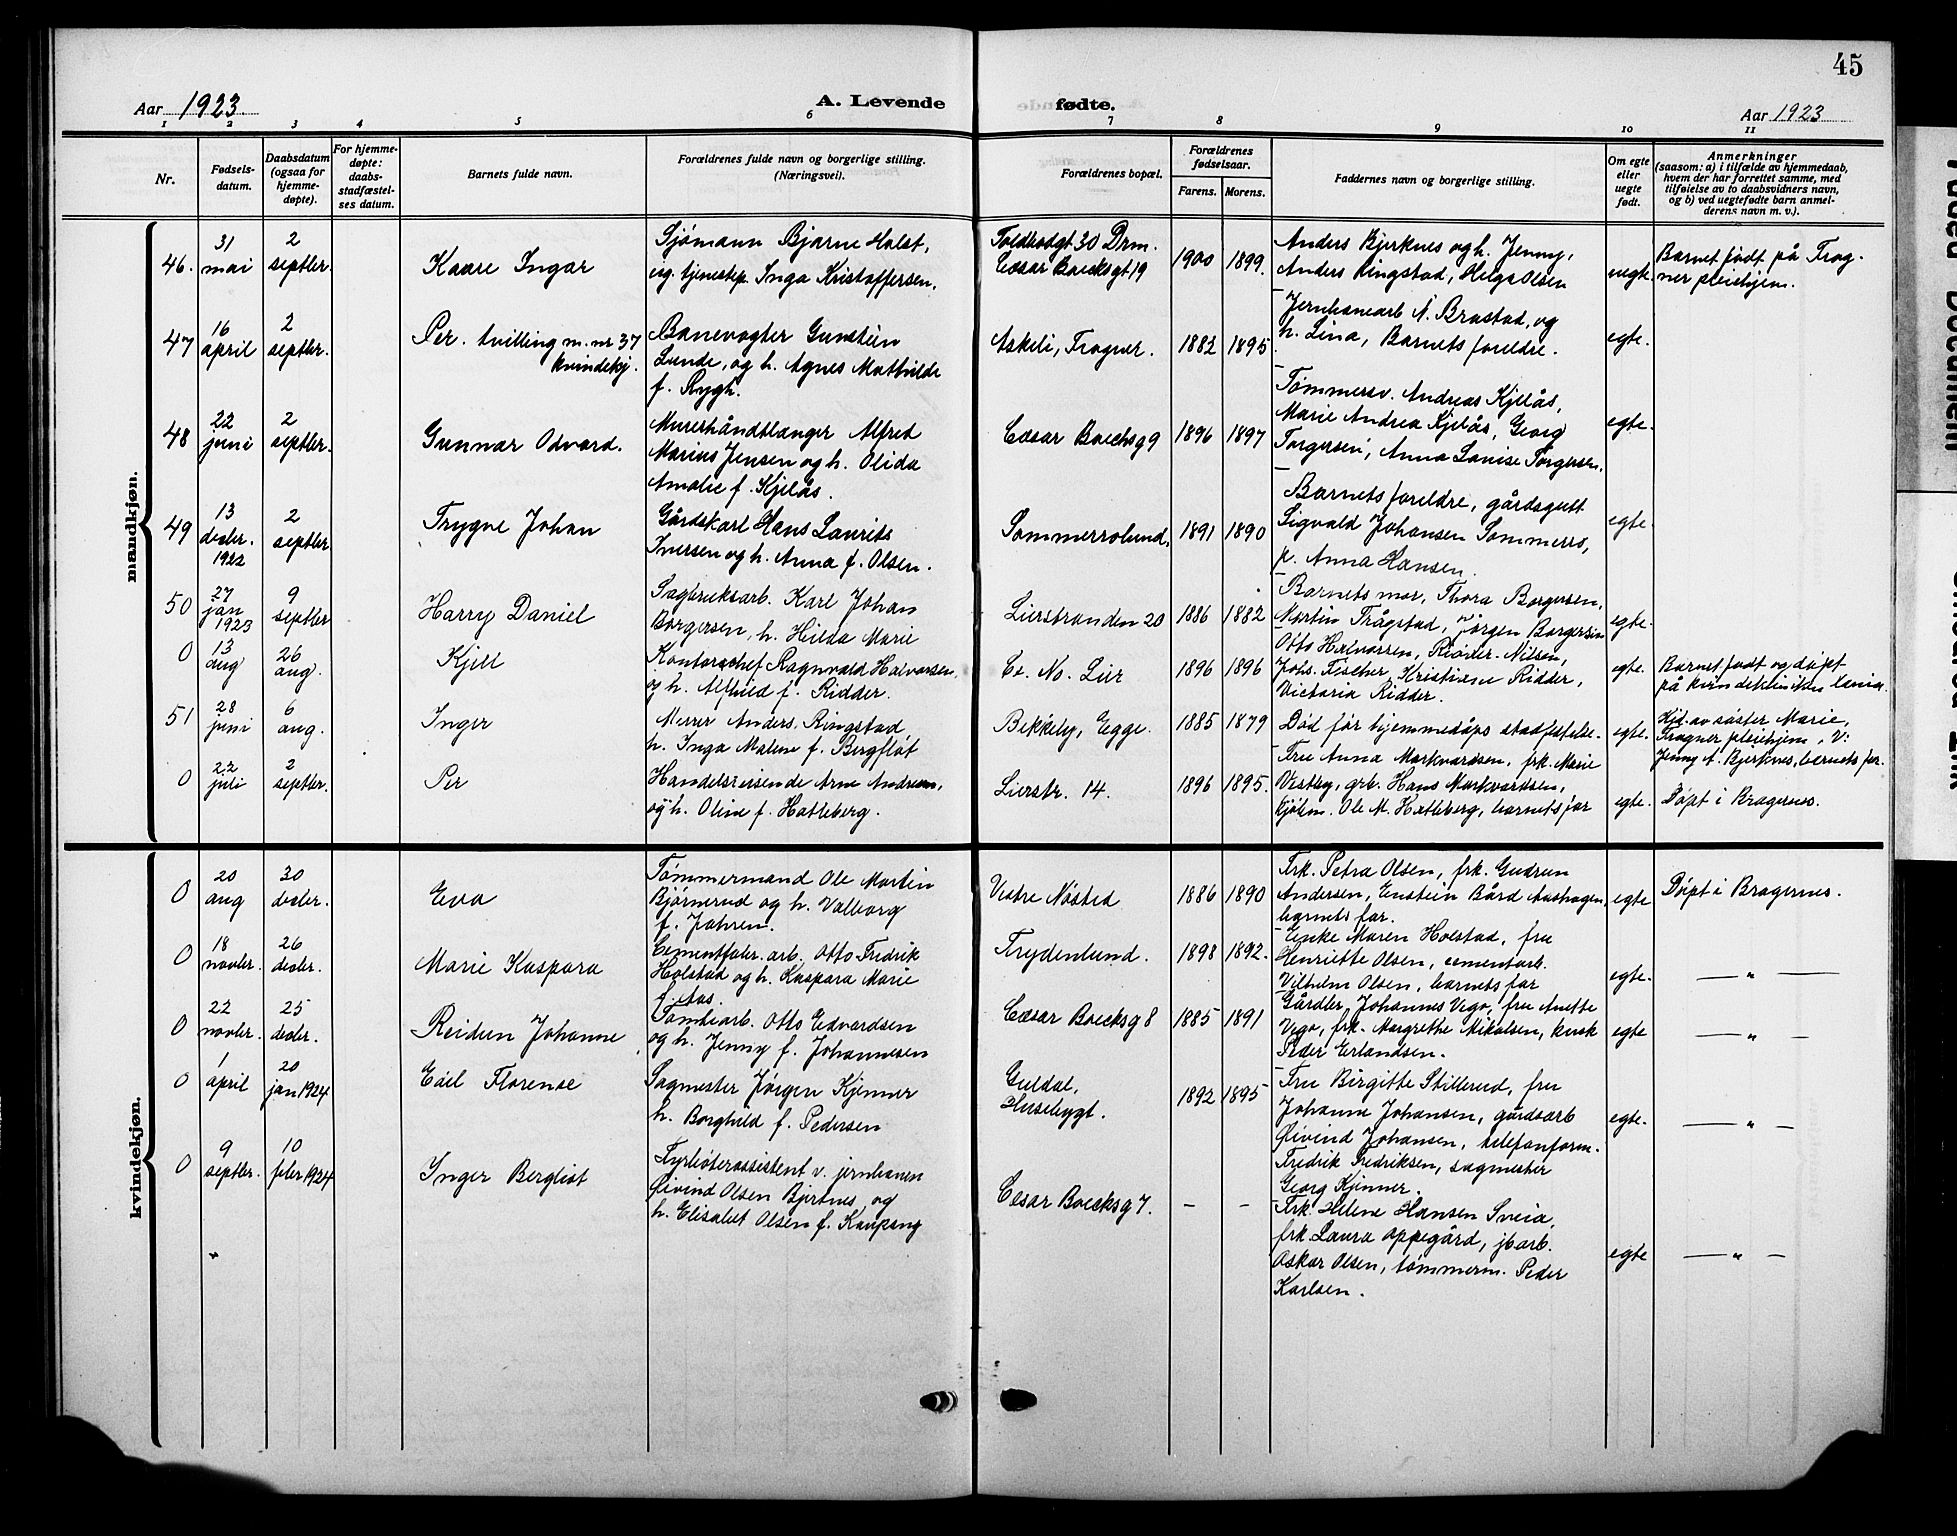 45
Aar 1923.
A. Levende
fødte.
Aar 1923
1 2 3 4 5 6 7 8 9 10 11
Nr.
Fødsels-
datum.
Daabsdatum
(ogsaa for
hjemme-
døpte).
For hjemme-
døpte:
daabs-
stadfæstel-
ses datum.
Barnets fulde navn.
Forældrenes fulde navn og borgerlige stilling.
(Næringsvei).
Forældrenes bopæl.
Forældrenes
fødselsaar.
Farens. Morens.
Faddernes navn og borgerlige stilling.
Om egte
eller
uegte
født.
Anmerkninger
(saasom: a) i tilfælde av hjemmedaab,
hvem der har forrettet samme, med
tilføielse av to daabsvidners navn,
og b) ved uegtefødte barn anmel-
derens navn m. v.).
mandkjøn.
46.
31
mai
2
septbr.
Kaare Ingar
Sjömann Bjarne Holst,
ug. tjenestep. Inga Kristoffersen.
Toldbodgt 30 Drm.
Cæsar Boecksgt 19
1900 1899.
Anders Bjerknes og h. Jenny,
Anders Ringstad, Helga Olsen
uegte.
Barnet født på Frog-
ner pleiehjem.
47
16
april
2
septbr.
Per. tvilling m. nr 37
kvindekj.
Banevogter Gunstein
Lunde, og h. Agnes Mathilde
f. Rygh.
Askeli, Frogner.
1882 1895
Jernbanearb N. Brastad, og
h. Lina, Barnets foreldre.
egte.
48
22
juni
2
septbr.
Gunnar Odvard.
Murerhåndtlanger Alfred
Marius Jensen og h. Olida
Amalie f. Kjelås.
Cæsar Boecksg 9
1896 1897
Tømmersv. Andreas Kjelås,
Marie Andrea Kjelås, Georg
Torgersen, Anna Lovise Torgersen.
egte.
49
13
decbr.
1922
2
septbr
Trygve Johan
Gårdskarl Hans Laurits
Iversen og h. Anna f. Olsen.
Sommerrolund.
1891 1890
Barnets foreldre, gårdsgutt
Sigvald Johansen Sommerro,
p. Anna Hansen.
egte.
50
27
jan
1923
9
septbr
Harry Daniel
Sagbruksarb. Karl Johan
Borgersen, h. Hilda Marie
Lierstranden 20
1886 1882
Barnets mor, Thora Borgersen,
Martin Trågstad, Jørgen Borgersen
egte.
0
13
aug
26
aug.
Kjell
Kontorschef Ragnvald Halvorsen,
og h. Alfhild f. Ridder.
Lier
1896 1896
Otto Halvorsen, Ridder-Nilsen,
Johs. Fischer, Kristiane Ridder,
Victoria Ridder.
egte.
Barnet født og døpt
på kvindeklinikken
51
28
juni
6
aug.
Inger
Murer Anders Ringstad
h. Inga Malene f. Bergfløt
Bekkeby, Egge.
1885 1879
Død før hjemmedåps stadfestelse.
egte.
Hjd. av søster Marie,
Frogner pleiehjem, V:
Jenny A. Bjerknes, barnets far.
0
22
juli
2
septbr.
Per
Handelsreisende Arne Andresen,
og h. Oline f. Hatleberg.
Lierstr. 14.
1896 1895.
Fru Anna Markvardsen, frk. Marie
Vestby, grb. Hans Markvardsen,
Kjölen. Ole M. Hatleberg, barnets far
egte.
Døpt i Bragernes.
kvindekjøn.
0
20
aug
30
decbr.
Eva
Tømmermand Ole Martin
Bjørnerud og h. Valborg
f. Jahren.
Vestre Nøsted
1886 1890
Frk. Petra Olsen, frk. Gudrun
Andersen, Enstein Bård Aashagen,
barnets far.
egte
Døpt i Bragernes.
0
18
novbr.
26
decbr.
Marie Kaspara
Cementfabr. arb. Otto Fredrik
Holstad og h. Kaspara Marie
f. Aas.
Frydenlund.
1898 1892.
Enke Maren Holstad, fru
Henriette Olsen, cementarb.
Vilhelm Olsen, barnets far
egte.
— " —
0
22
novbr.
25
decbr.
Reidun Johanne
Tomtearb. Otto Edvardsen
og h. Jenny f. Johannesen
Cæsar Boecksg 8
1885 1891
Gårdbr. Johannes Vego, fru Anette
Vego, frk. Margrethe Nikolsen, kusk
Peder Erlandsen.
egte
— " —
0
1
april
20
jan 1924
Edel Florense
Sagmester Jørgen Kjenner
h. Borghild f. Pedersen
Guldal,
Husebygt.
1892 1895
Fru Birgitte Stillerud, fru
Johanne Johansen, gårdsarb
Øivind Johansen, telefonform.
Fredrik Fredriksen, sagmester
Georg Kjenner.
egte.
— " —
0
9
septbr.
10
febr 1924
Inger Bergliot
Fyrbøterassistent v. jernbanen
Øivind Olsen Bjerknes og
h. Elisabet Olsen f. Kaupang
Cæsar Boecksg 7.
– –
Frk. Helene Hansen Sveia,
frk. Laura Oppegård, jbarb.
Oskar Olsen, tømmerm. Peder
Karlsen.
egte
— " —